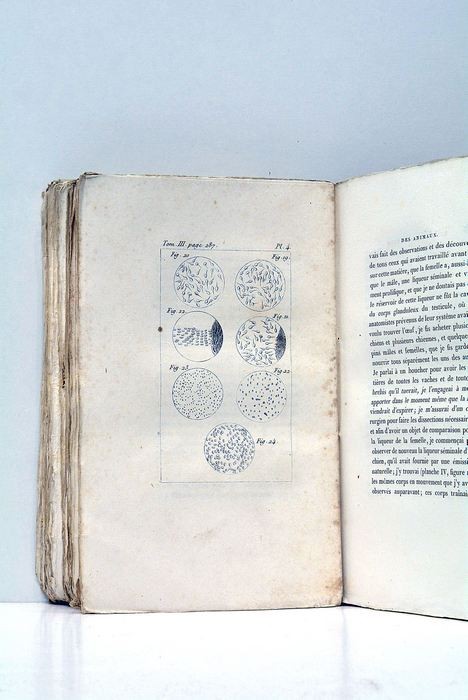 Tom. III page 287.
Pl. 4.
Fig. 20
Fig. 19.
Fig. 22.
Fig. 21.
Fig. 23
Fig. 22
Fig. 24.
DES ANIMAUX.
vais fait des observations et des découve
de tous ceux qui avaient travaillé avant
sur cette matière, que la femelle a, aussi-
que le mâle, une liqueur séminale et v
ment prolifique, et que je ne doutais pas
le réservoir de cette liqueur ne fût la cav
du corps glanduleux du testicule, où
anatomistes prévenus de leur système avai
voulu trouver l'œuf, je fis acheter plusie
chiens et plusieurs chiennes, et quelque
pins mâles et femelles, que je fis garde
nourrir tous séparément les uns des aut
Je parlai à un boucher pour avoir les
tières de toutes les vaches et de toute
brebis qu'il tuerait, je l'engageai à me
apporter dans le moment même que la
viendrait d'expirer; je m'assurai d'un c
rurgien pour faire les dissections nécessair
et afin d'avoir un objet de comparaison po
la liqueur de la femelle, je commençai
observer de nouveau la liqueur séminale d'
chien, qu'il avait fournie par une émissi
naturelle; j'y trouvai (planche IV, figure
les mêmes corps en mouvement que j'y av
observés auparavant; ces corps traîna